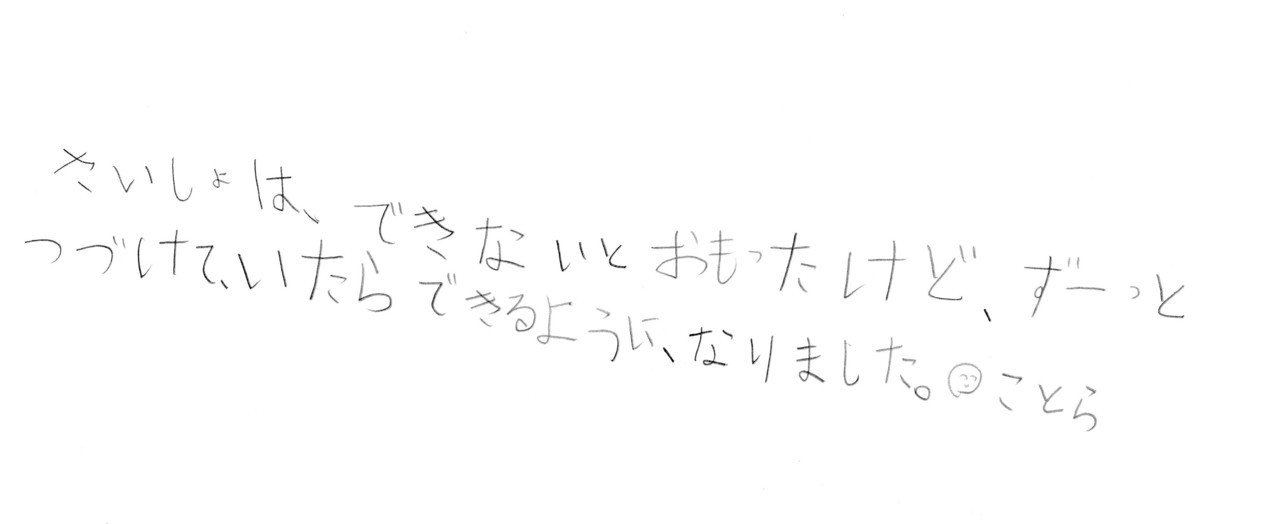 さいしょは、できないとおもったけど、ずーっと
つづけて、いたらできるように、なりました。☺ことら